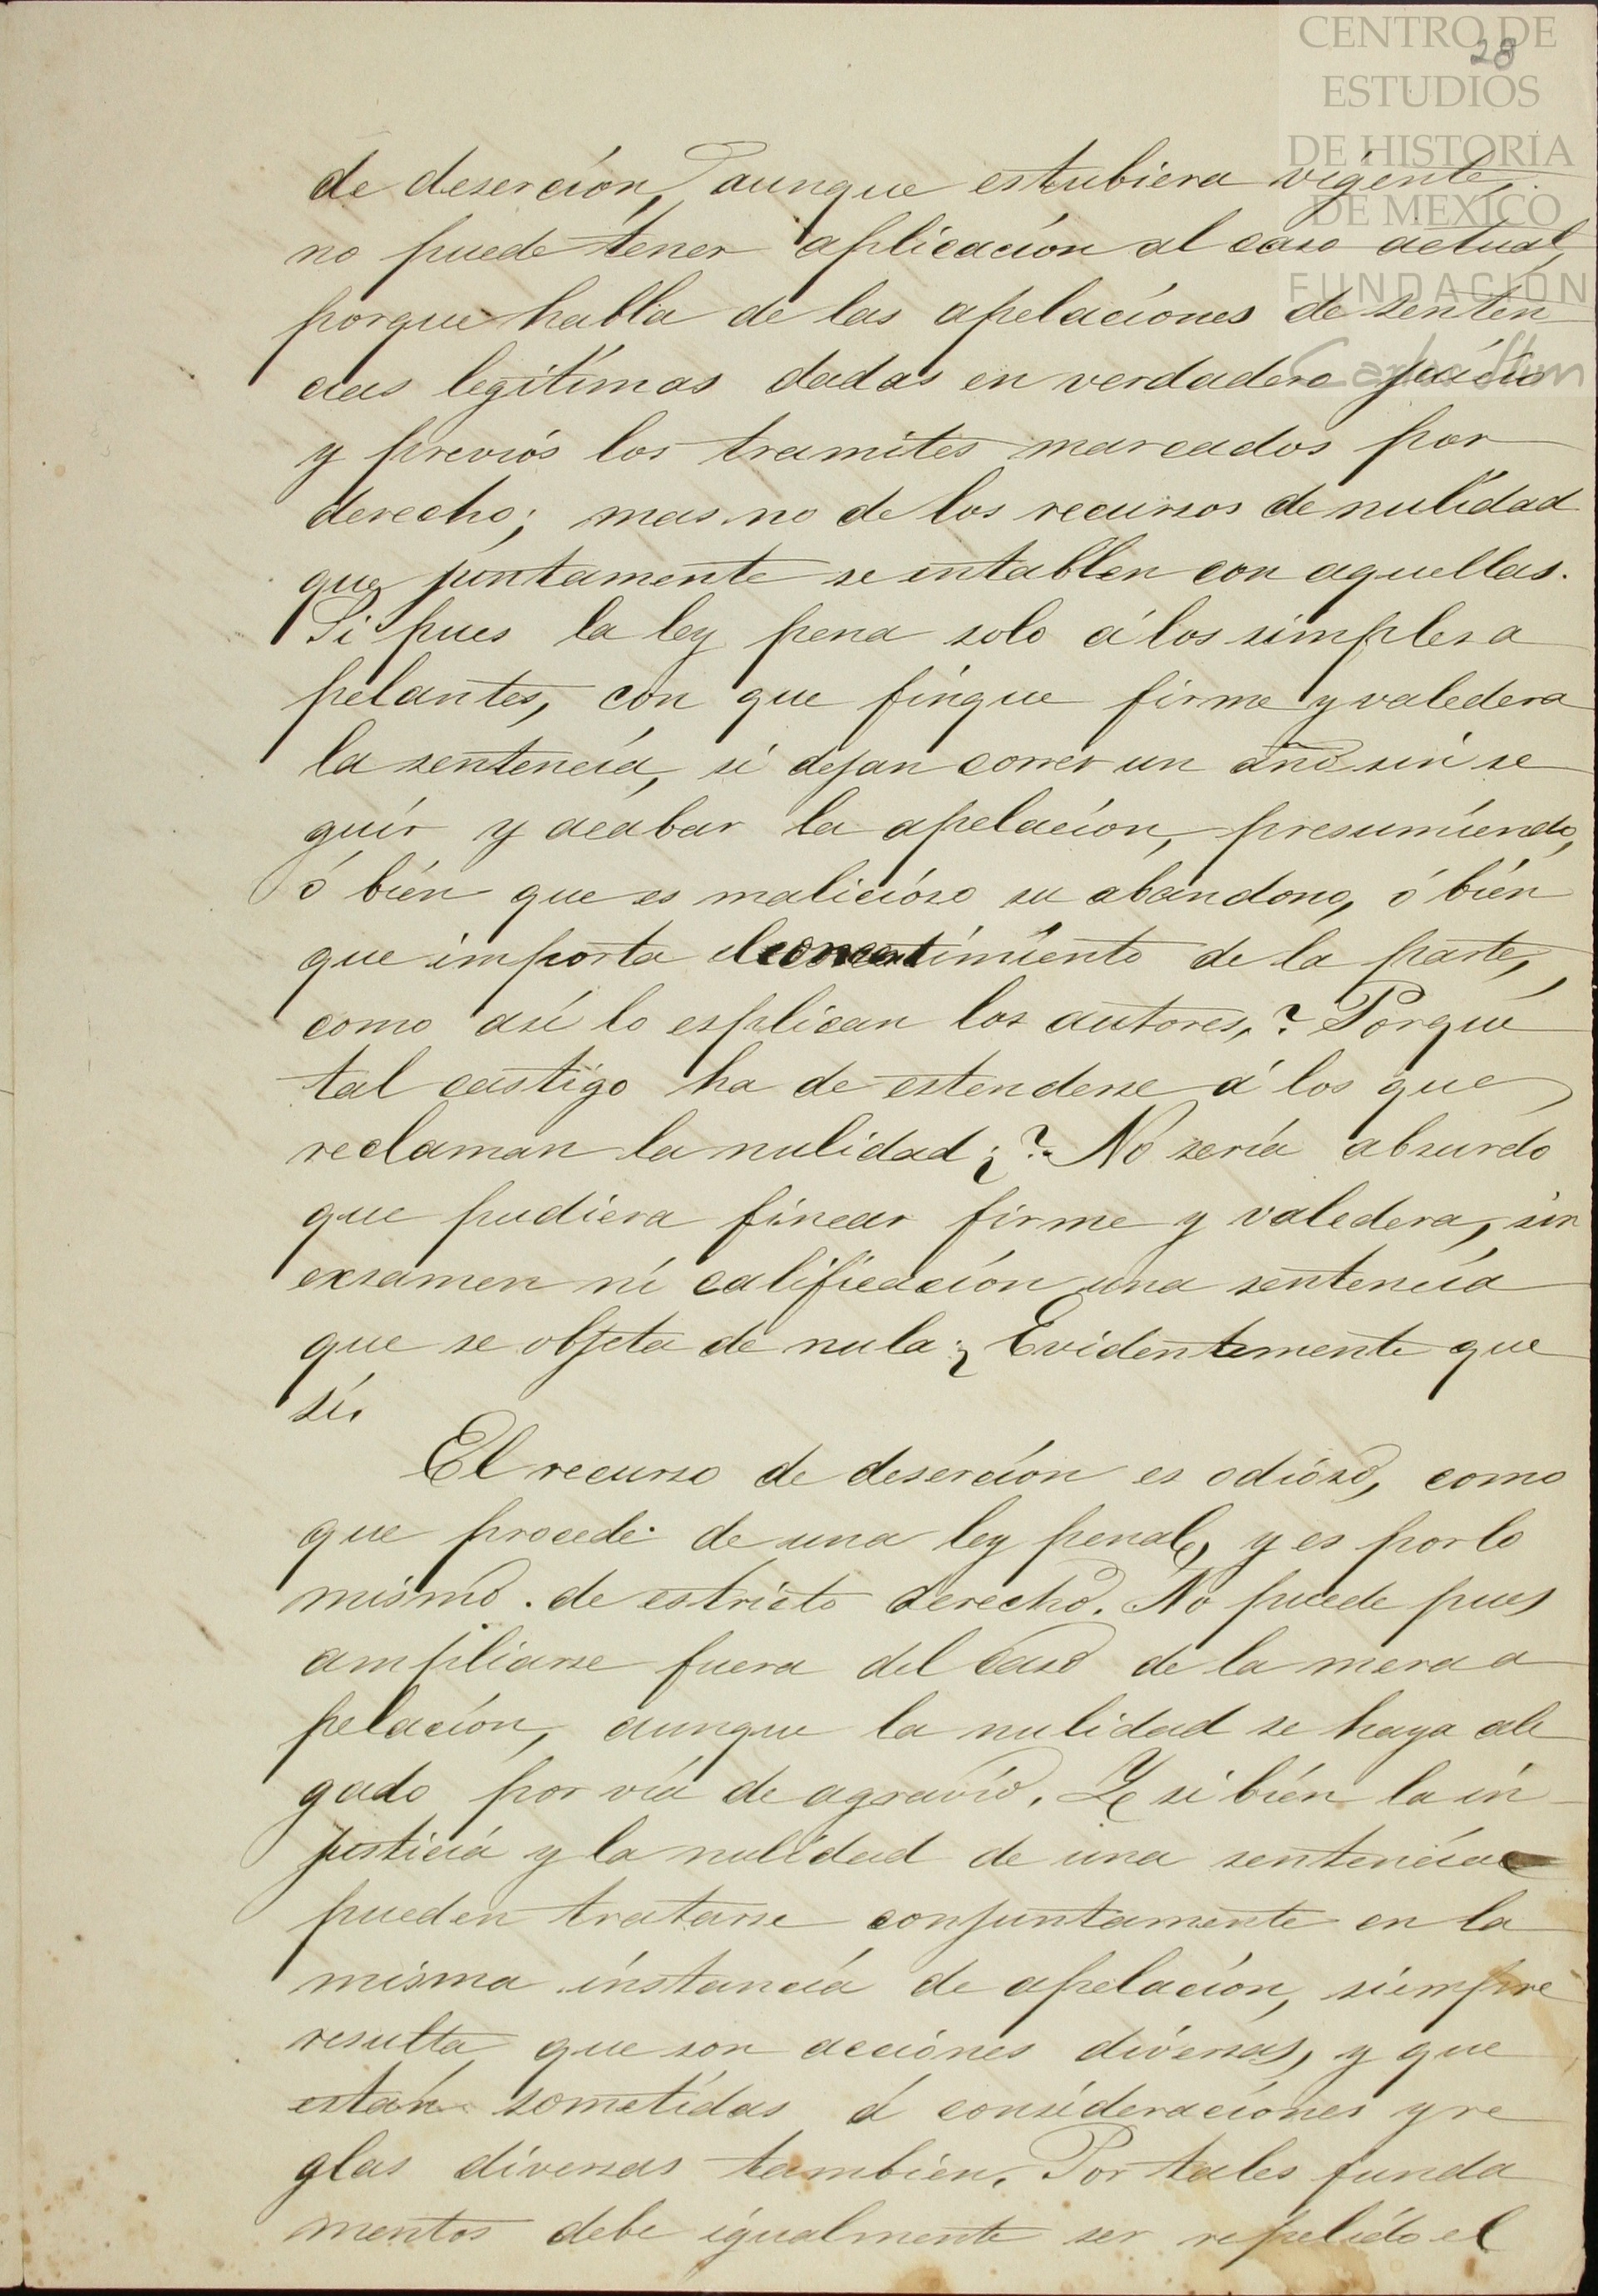 CENTRO DE
28
ESTUDIOS
DE HISTORIA
DE MEXICO
FUNDACIÓN
de deserción, aunque estubiera vigente,
no puede tener aplicación al caso actual,
porque habla de las apelaciones de senten
cias legítimas dadas en verdadero juicio
y previós los tramites marcados por
derecho; mas no de los recursos de nulidad
que juntamente se entablen con aquellas.
Si pues la ley pena solo á los simples a
pelantes, con que finque firme y valedera
la sentencia, si dejan correr un año sin se
guir y acabar la apelación, presumiendo,
ó bién que es malicióso su abandono, ó bién
que importa el consentimiento de la parte,
como así lo esplican los autores,? Porque
tal castigo ha de estenderse á los que
reclaman la nulidad ¿? No sería absurdo
que pudiera fincar firme y valedera, sin
exsamen ni calificación una sentencia
que se objeta de nula ¿ Evidentemente que
sí.
El recurso de deserción es odióso, como
que procede de una ley penal, y es por lo
mismo. de estricto derecho. No puede pues
ampliarse fuera del caso de la mera a
pelación, aunque la nulidad se haya ale
gado por vía de agravio. Y si bién la in
justicia y la nulidad de una sentencia
pueden tratarse conjuntamente en la
misma instancia de apelación, siempre
resulta que son acciónes diversas, y que
están sometidas á consideraciónes y re
glas diversas tambien. Por tales funda
mentos debe igualmente ser repelido el